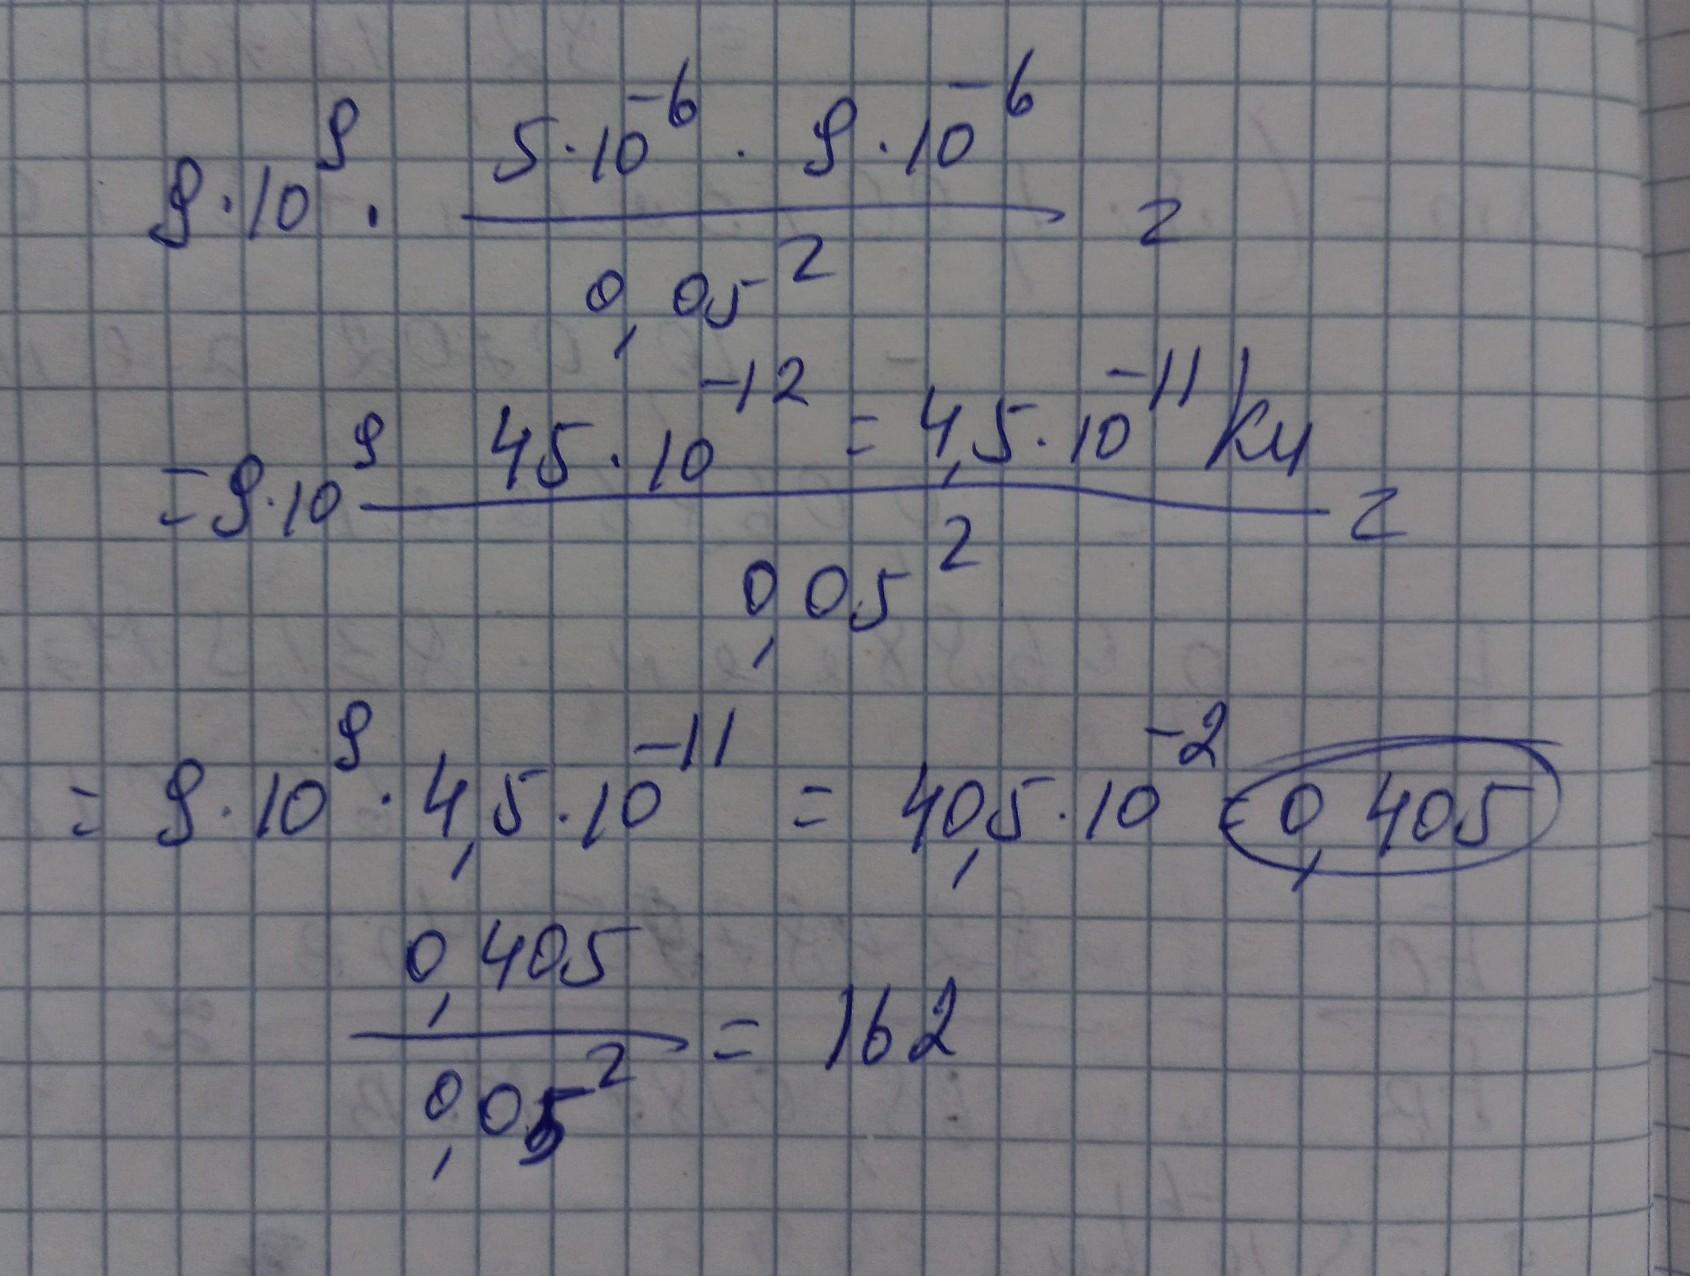 9·10⁹ · (5·10⁻⁶ · 9·10⁻⁶)/(0,05²) =
= 9·10⁹ (45·10⁻¹² = 4,5·10⁻¹¹ Кл)/(0,05²) =
= 9·10⁹ · 4,5·10⁻¹¹ = 40,5·10⁻² = 0,405
0,405/0,05² = 162